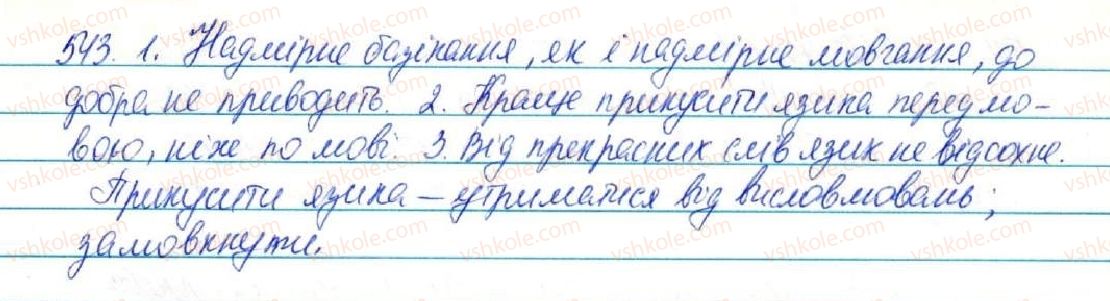 543. 1. Надмірне базікання, як і надмірне мовчання, до
добра не приводить. 2. Краще прикусити язика перед мо-
вою, ніже по мові. 3. Від прекрасних слів язик не відсохне.
Прикусити язика – утриматися від висловлювань;
замовкнути.